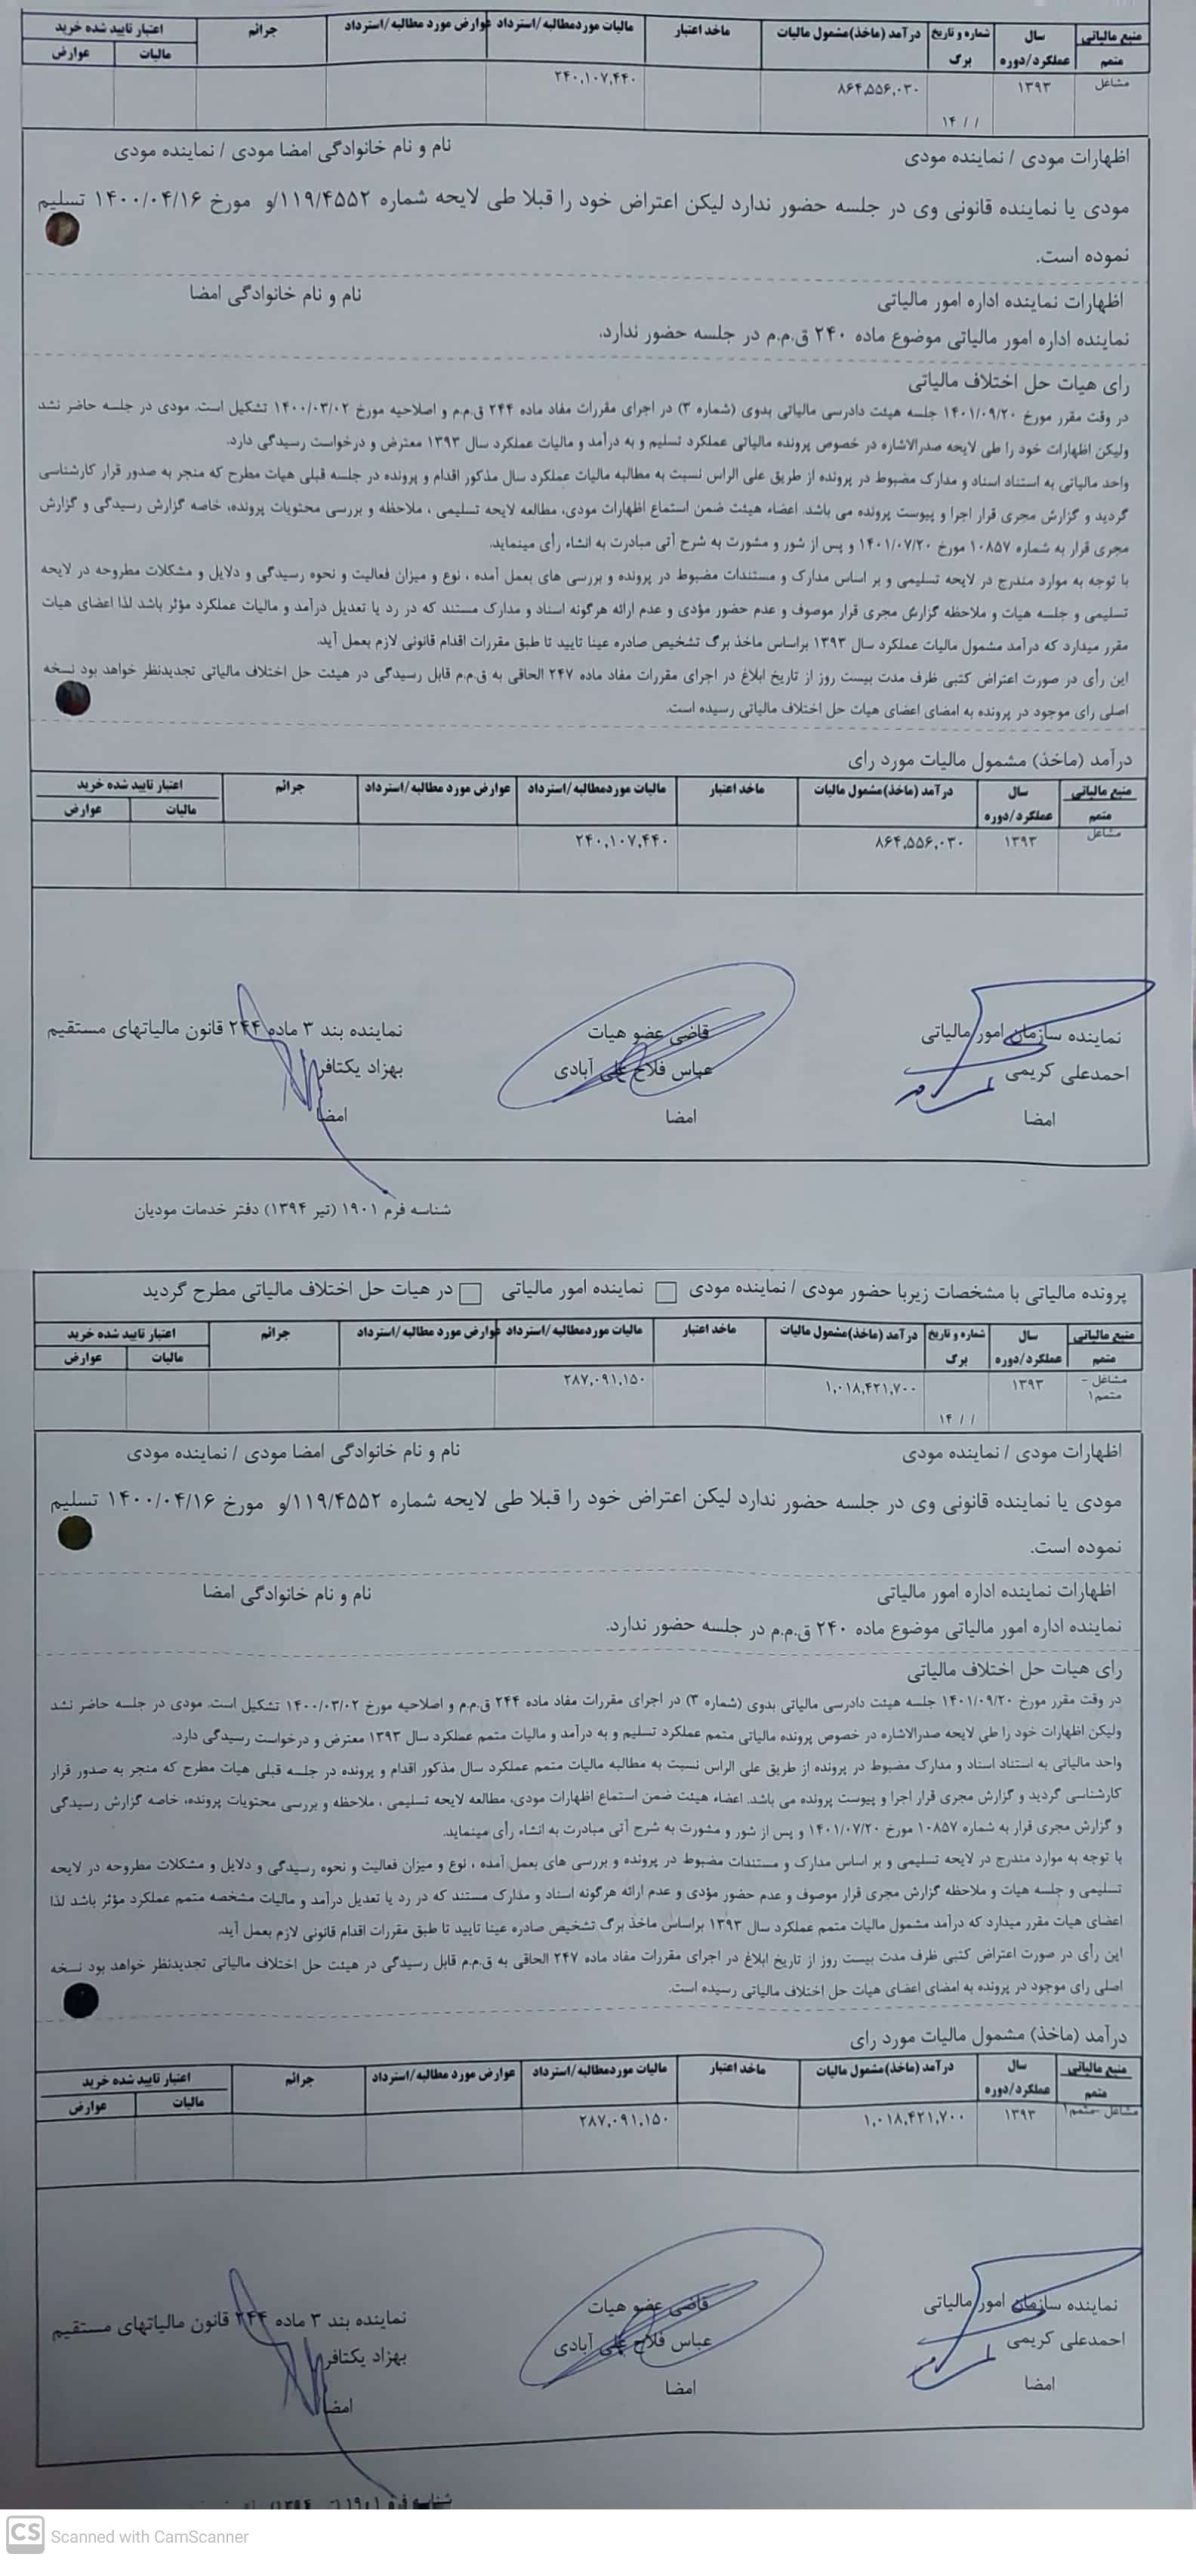 منبع مالیاتی	سال	شماره و تاریخ	درآمد (ماخذ)مشمول مالیات	ماخد اعتبار	مالیات موردمطالبه/استرداد	عوارض مورد مطالبه/استرداد	جرائم	اعتبار تایید شده خرید
متمم	عملکرد/دوره	برگ	مالیات	عوارض
مشاغل	۱۳۹۳	۸۶۴,۵۵۶,۰۳۰	۲۴۰,۱۰۷,۴۴۰
۱۴ / /
اظهارات مودی / نماینده مودی	نام و نام خانوادگی امضا مودی / نماینده مودی
مودی یا نماینده قانونی وی در جلسه حضور ندارد لیکن اعتراض خود را قبلا طی لایحه شماره ۱۱۹/۴۵۵۲/و مورخ ۱۴۰۰/۰۴/۱۶ تسلیم
نموده است.
اظهارات نماینده اداره امور مالیاتی	نام و نام خانوادگی امضا
نماینده اداره امور مالیاتی موضوع ماده ۲۴۰ ق.م.م در جلسه حضور ندارد.
رای هیات حل اختلاف مالیاتی
در وقت مقرر مورخ ۱۴۰۱/۰۹/۲۰ جلسه هیئت دادرسی مالیاتی بدوی (شماره ۳) در اجرای مقررات مفاد ماده ۲۴۴ ق.م.م و اصلاحیه مورخ ۱۴۰۰/۰۳/۰۲ تشکیل است. مودی در جلسه حاضر نشد
ولیکن اظهارات خود را طی لایحه صدرالاشاره در خصوص پرونده مالیاتی عملکرد تسلیم و به درآمد و مالیات عملکرد سال ۱۳۹۳ معترض و درخواست رسیدگی دارد.
واحد مالیاتی به استناد اسناد و مدارک مضبوط در پرونده از طریق علی الراس نسبت به مطالبه مالیات عملکرد سال مذکور اقدام و پرونده در جلسه قبلی هیات مطرح که منجر به صدور قرار کارشناسی
گردید و گزارش مجری قرار اجرا و پیوست پرونده می باشد. اعضاء هیئت ضمن استماع اظهارات مودی، مطالعه لایحه تسلیمی ، ملاحظه و بررسی محتویات پرونده، خاصه گزارش رسیدگی و گزارش
مجری قرار به شماره ۱۰۸۵۷ مورخ ۱۴۰۱/۰۷/۲۰ و پس از شور و مشورت به شرح آتی مبادرت به انشاء رأی مینماید.
با توجه به موارد مندرج در لایحه تسلیمی و بر اساس مدارک و مستندات مضبوط در پرونده و بررسی های بعمل آمده ، نوع و میزان فعالیت و نحوه رسیدگی و دلایل و مشکلات مطروحه در لایحه
تسلیمی و جلسه هیات و ملاحظه گزارش مجری قرار موصوف و عدم حضور مؤدی و عدم ارائه هرگونه اسناد و مدارک مستند که در رد یا تعدیل درآمد و مالیات عملکرد مؤثر باشد لذا اعضای هیات
مقرر میدارد که درآمد مشمول مالیات عملکرد سال ۱۳۹۳ براساس ماخذ برگ تشخیص صادره عینا تایید تا طبق مقررات اقدام قانونی لازم بعمل آید.
این رأی در صورت اعتراض کتبی ظرف مدت بیست روز از تاریخ ابلاغ در اجرای مقررات مفاد ماده ۲۴۷ الحاقی به ق.م.م قابل رسیدگی در هیئت حل اختلاف مالیاتی تجدیدنظر خواهد بود نسخه
اصلی رای موجود در پرونده به امضای اعضای هیات حل اختلاف مالیاتی رسیده است.
درآمد (ماخذ) مشمول مالیات مورد رای
منبع مالیاتی	سال	درآمد (ماخذ)مشمول مالیات	ماخد اعتبار	مالیات موردمطالبه/استرداد	عوارض مورد مطالبه/استرداد	جرائم	اعتبار تایید شده خرید
متمم	عملکرد/دوره	مالیات	عوارض
مشاغل	۱۳۹۳	۸۶۴,۵۵۶,۰۳۰	۲۴۰,۱۰۷,۴۴۰
نماینده سازمان امور مالیاتی	قاضی عضو هیات	نماینده بند ۳ ماده ۲۴۴ قانون مالیاتهای مستقیم
احمدعلی کریمی	عباس فلاح علی آبادی	بهزاد یکتافر
امضا	امضا	امضا
شناسه فرم ۱۹۰۱ (تیر ۱۳۹۴) دفتر خدمات مودیان
پرونده مالیاتی با مشخصات زیربا حضور مودی / نماینده مودی	نماینده امور مالیاتی	در هیات حل اختلاف مالیاتی مطرح گردید
منبع مالیاتی	سال	شماره و تاریخ	درآمد (ماخذ)مشمول مالیات	ماخذ اعتبار	مالیات موردمطالبه/استرداد	عوارض مورد مطالبه/استرداد	جرائم	اعتبار تایید شده خرید
متمم	عملکرد/دوره	برگ	مالیات	عوارض
مشاغل -	۱۳۹۳	۱,۰۱۸,۴۲۱,۷۰۰	۲۸۷,۰۹۱,۱۵۰
متمم۱	۱۴ / /
اظهارات مودی / نماینده مودی	نام و نام خانوادگی امضا مودی / نماینده مودی
مودی یا نماینده قانونی وی در جلسه حضور ندارد لیکن اعتراض خود را قبلا طی لایحه شماره ۱۱۹/۴۵۵۲/و مورخ ۱۴۰۰/۰۴/۱۶ تسلیم
نموده است.
اظهارات نماینده اداره امور مالیاتی	نام و نام خانوادگی امضا
نماینده اداره امور مالیاتی موضوع ماده ۲۴۰ ق.م.م در جلسه حضور ندارد.
رای هیات حل اختلاف مالیاتی
در وقت مقرر مورخ ۱۴۰۱/۰۹/۲۰ جلسه هیئت دادرسی مالیاتی بدوی (شماره ۳) در اجرای مقررات مفاد ماده ۲۴۴ ق.م.م و اصلاحیه مورخ ۱۴۰۰/۰۳/۰۲ تشکیل است. مودی در جلسه حاضر نشد
ولیکن اظهارات خود را طی لایحه صدرالاشاره در خصوص پرونده مالیاتی متمم عملکرد تسلیم و به درآمد و مالیات متمم عملکرد سال ۱۳۹۳ معترض و درخواست رسیدگی دارد.
واحد مالیاتی به استناد اسناد و مدارک مضبوط در پرونده از طریق علی الراس نسبت به مطالبه مالیات متمم عملکرد سال مذکور اقدام و پرونده در جلسه قبلی هیات مطرح که منجر به صدور قرار
کارشناسی گردید و گزارش مجری قرار اجرا و پیوست پرونده می باشد. اعضاء هیئت ضمن استماع اظهارات مودی، مطالعه لایحه تسلیمی ، ملاحظه و بررسی محتویات پرونده، خاصه گزارش رسیدگی
و گزارش مجری قرار به شماره ۱۰۸۵۷ مورخ ۱۴۰۱/۰۷/۲۰ و پس از شور و مشورت به شرح آتی مبادرت به انشاء رأی مینماید.
با توجه به موارد مندرج در لایحه تسلیمی و بر اساس مدارک و مستندات مضبوط در پرونده و بررسی های بعمل آمده ، نوع و میزان فعالیت و نحوه رسیدگی و دلایل و مشکلات مطروحه در لایحه
تسلیمی و جلسه هیات و ملاحظه گزارش مجری قرار موصوف و عدم حضور مؤدی و عدم ارائه هرگونه اسناد و مدارک مستند که در رد یا تعدیل درآمد و مالیات مشخصه متمم عملکرد مؤثر باشد لذا
اعضای هیات مقرر میدارد که درآمد مشمول مالیات متمم عملکرد سال ۱۳۹۳ براساس ماخذ برگ تشخیص صادره عینا تایید تا طبق مقررات اقدام قانونی لازم بعمل آید.
این رأی در صورت اعتراض کتبی ظرف مدت بیست روز از تاریخ ابلاغ در اجرای مقررات مفاد ماده ۲۴۷ الحاقی به ق.م.م قابل رسیدگی در هیئت حل اختلاف مالیاتی تجدیدنظر خواهد بود نسخه
اصلی رای موجود در پرونده به امضای اعضای هیات حل اختلاف مالیاتی رسیده است.
درآمد (ماخذ) مشمول مالیات مورد رای
منبع مالیاتی	سال	درآمد (ماخذ)مشمول مالیات	ماخد اعتبار	مالیات موردمطالبه/استرداد	عوارض مورد مطالبه/استرداد	جرائم	اعتبار تایید شده خرید
متمم	عملکرد/دوره	مالیات	عوارض
مشاغل -متمم۱	۱۳۹۳	۱,۰۱۸,۴۲۱,۷۰۰	۲۸۷,۰۹۱,۱۵۰
نماینده سازمان امور مالیاتی	قاضی عضو هیات	نماینده بند ۳ ماده ۲۴۴ قانون مالیاتهای مستقیم
احمدعلی کریمی	عباس فلاح علی آبادی	بهزاد یکتافر
امضا	امضا	امضا
شناسه فرم ۱۹۰۱
CS Scanned with CamScanner